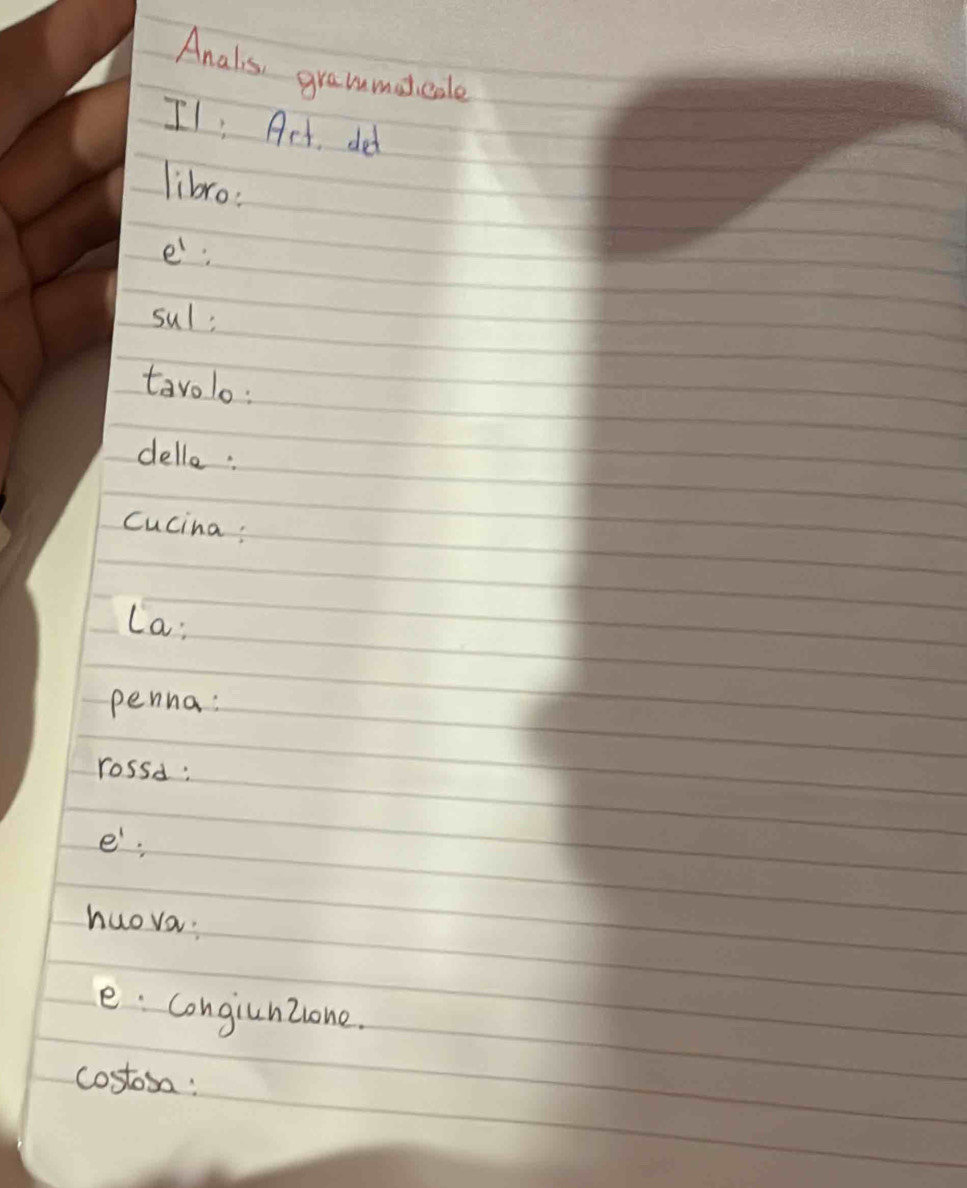 Analisi grammaticale
Il: Art. det
libro:
e':
sul:
tavolo:
della:
cucina:
La:
penna:
rossa:
e':
nuova:
e: congiunzione.
costosa: